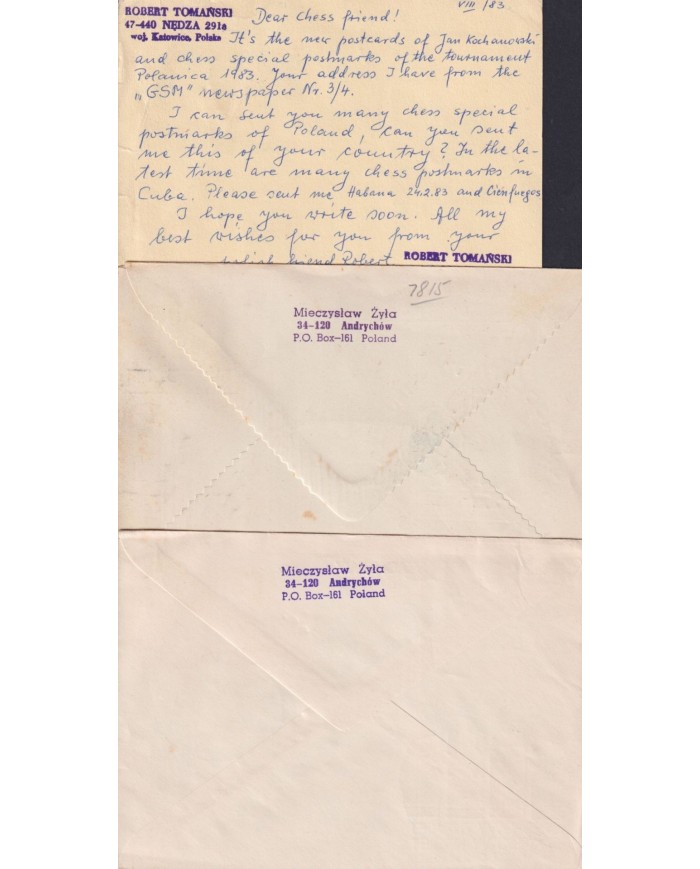 VIII /83.
ROBERT TOMAŃSKI
47-440 NĘDZA 291a
woj. Katowice, Polska
Dear Chess friend!
It's the new postcards of Jan Kochanowski
and chess special postmarks of the tournament
Polanica 1983. Your address I have from the
„GSM" newspaper Nr. 3/4.
I can sent you many chess special
postmarks of Poland, can you sent
me this of your country? In the la-
test time are many chess postmarks in
Cuba. Please sent me Habana 24.2.83 and Cienfuegos
I hope you write soon. All my
best wishes for you from your
friend Robert
ROBERT TOMAŃSKI
7815
Mieczysław Żyła
34-120 Andrychów
P.O. Box-161 Poland
Mieczysław Żyła
34-120 Andrychów
P.O. Box-161 Poland